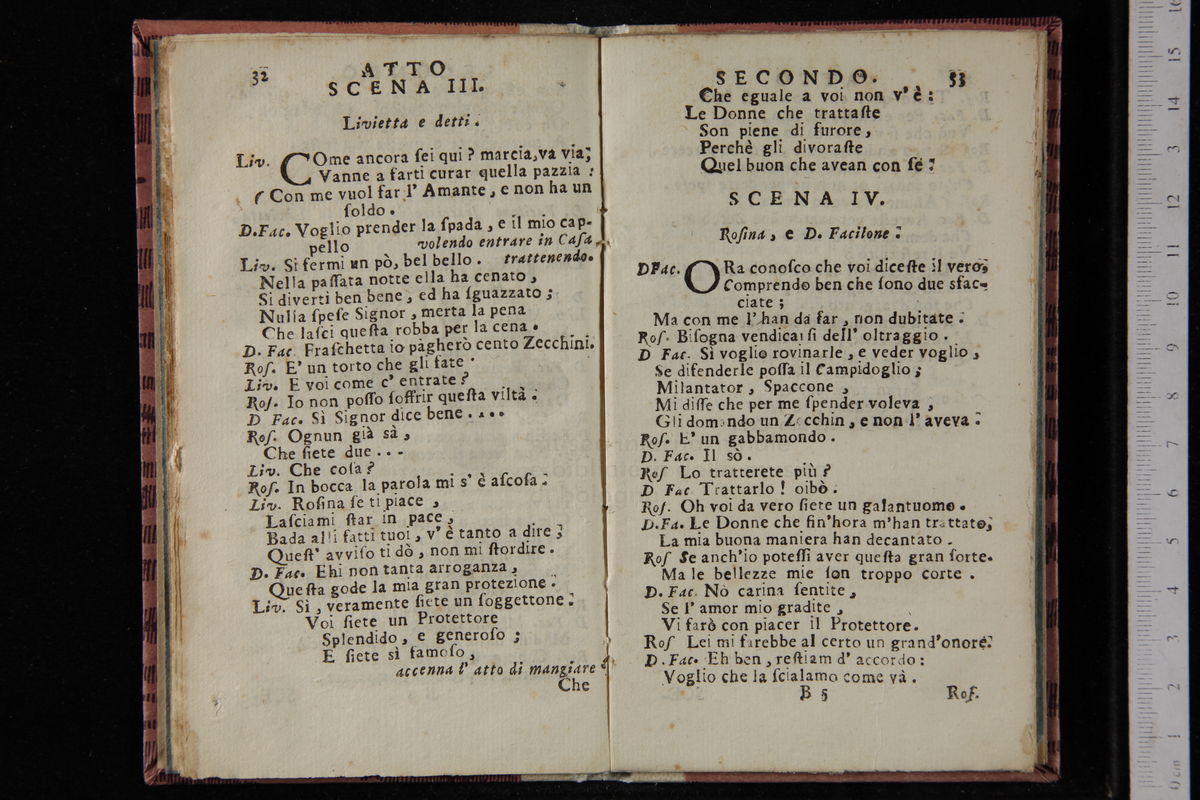 32
ATTO
SCENA III.
Livietta e detti.
Liv. COme ancora ſei qui? marcia, va via;
Vanne a farti curar quella pazzia:
(Con me vuol far l' Amante, e non ha un
ſoldo.
D.Fac. Voglio prender la ſpada, e il mio cap-
pello volendo entrare in Caſa
Liv. Si fermi un pò, bel bello. trattenendo.
Nella paſſata notte ella ha cenato,
Si divertì ben bene, ed ha ſguazzato;
Nulla ſpeſe Signor, merta la pena
Che laſci queſta robba per la cena.
D. Fac. Fraſchetta io pagherò cento Zecchini.
Roſ. E' un torto che gli fate.
Liv. E voi come c' entrate?
Roſ. Io non poſſo ſoffrir queſta viltà.
D Fac. Sì Signor dice bene....
Roſ. Ognun già sà,
Che ſiete due...
Liv. Che coſa?
Roſ. In bocca la parola mi s' è aſcoſa.
Liv. Roſina ſe ti piace,
Laſciami ſtar in pace,
Bada alli fatti tuoi, v' è tanto a dire;
Queſt' avviſo ti dò, non mi ſtordire.
D. Fac. Ehi non tanta arroganza,
Queſta gode la mia gran protezione.
Liv. Sì, veramente ſiete un ſoggettone:
Voi ſiete un Protettore
Splendido, e generoſo;
E ſiete sì famoſo,
accenna l' atto di mangiare
Che
SECONDO. 33
Che eguale a voi non v' è:
Le Donne che trattaſte
Son piene di furore,
Perchè gli divoraſte
Quel buon che avean con ſé.
SCENA IV.
Roſina, e D. Facilone.
DFac. ORa conoſco che voi diceſte il vero;
Comprendo ben che ſono due sfac-
ciate;
Ma con me l' han da far, non dubitate.
Roſ. Biſogna vendicarſi dell' oltraggio.
D Fac. Sì voglio rovinarle, e veder voglio,
Se difenderle poſſa il Campidoglio;
Milantator, Spaccone,
Mi diſſe che per me ſpender voleva,
Gli domando un Zecchin, e non l' aveva.
Roſ. E' un gabbamondo.
D. Fac. Il sò.
Roſ Lo tratterete più?
D Fac Trattarlo! oibò.
Roſ. Oh voi da vero ſiete un galantuomo.
D.Fa. Le Donne che fin'hora m'han trattato,
La mia buona maniera han decantato.
Roſ Se anch'io poteſſi aver queſta gran ſorte.
Ma le bellezze mie ſon troppo corte.
D. Fac. Nò carina ſentite,
Se l' amor mio gradite,
Vi farò con piacer il Protettore.
Roſ Lei mi farebbe al certo un grand'onore.
D. Fac. Eh ben, reſtiam d' accordo:
Voglio che la ſcialamo come và.
B 5 Roſ.